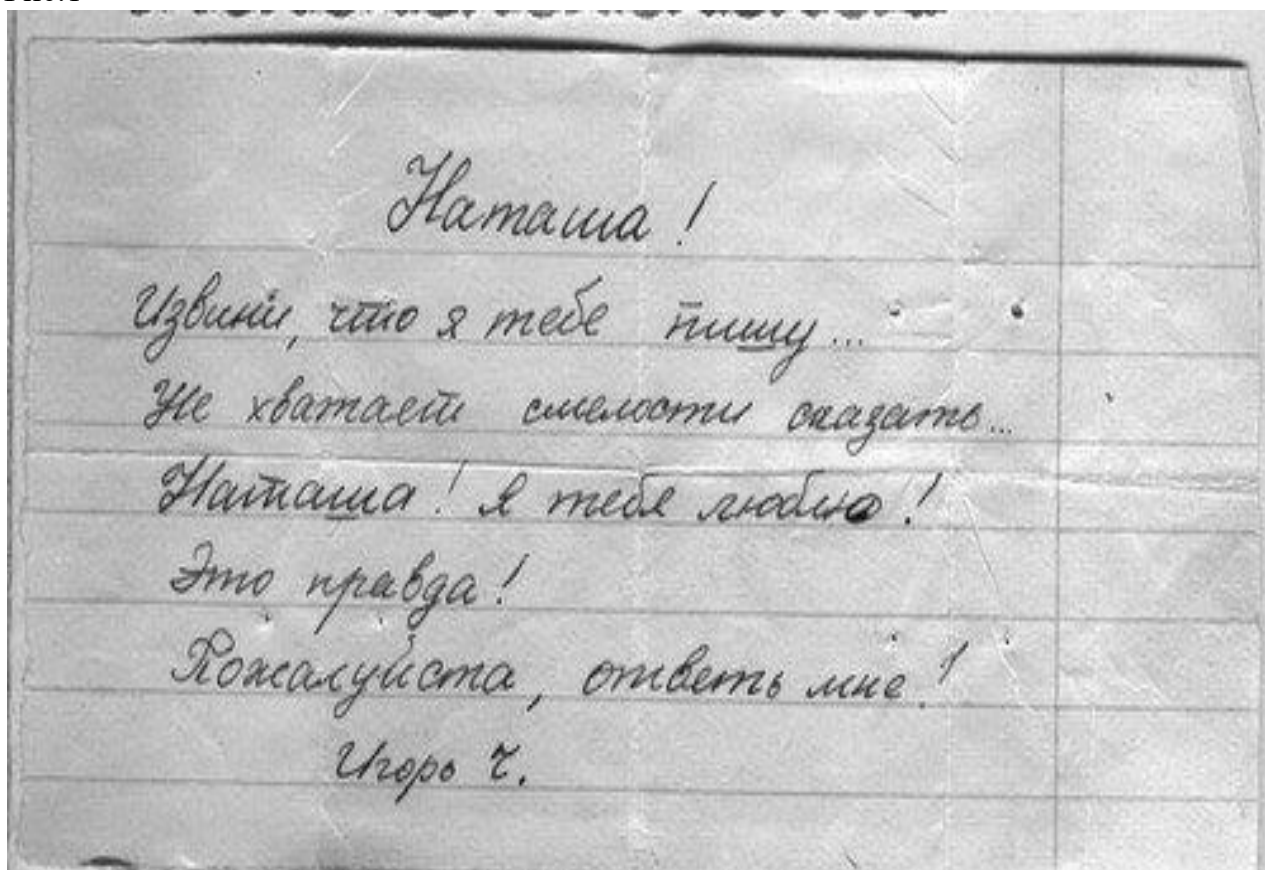 Наташа!
Извини, что я тебе пишу...
Не хватает смелости сказать...
Наташа! Я тебя люблю!
Это правда!
Пожалуйста, ответь мне!
Игорь Ч.